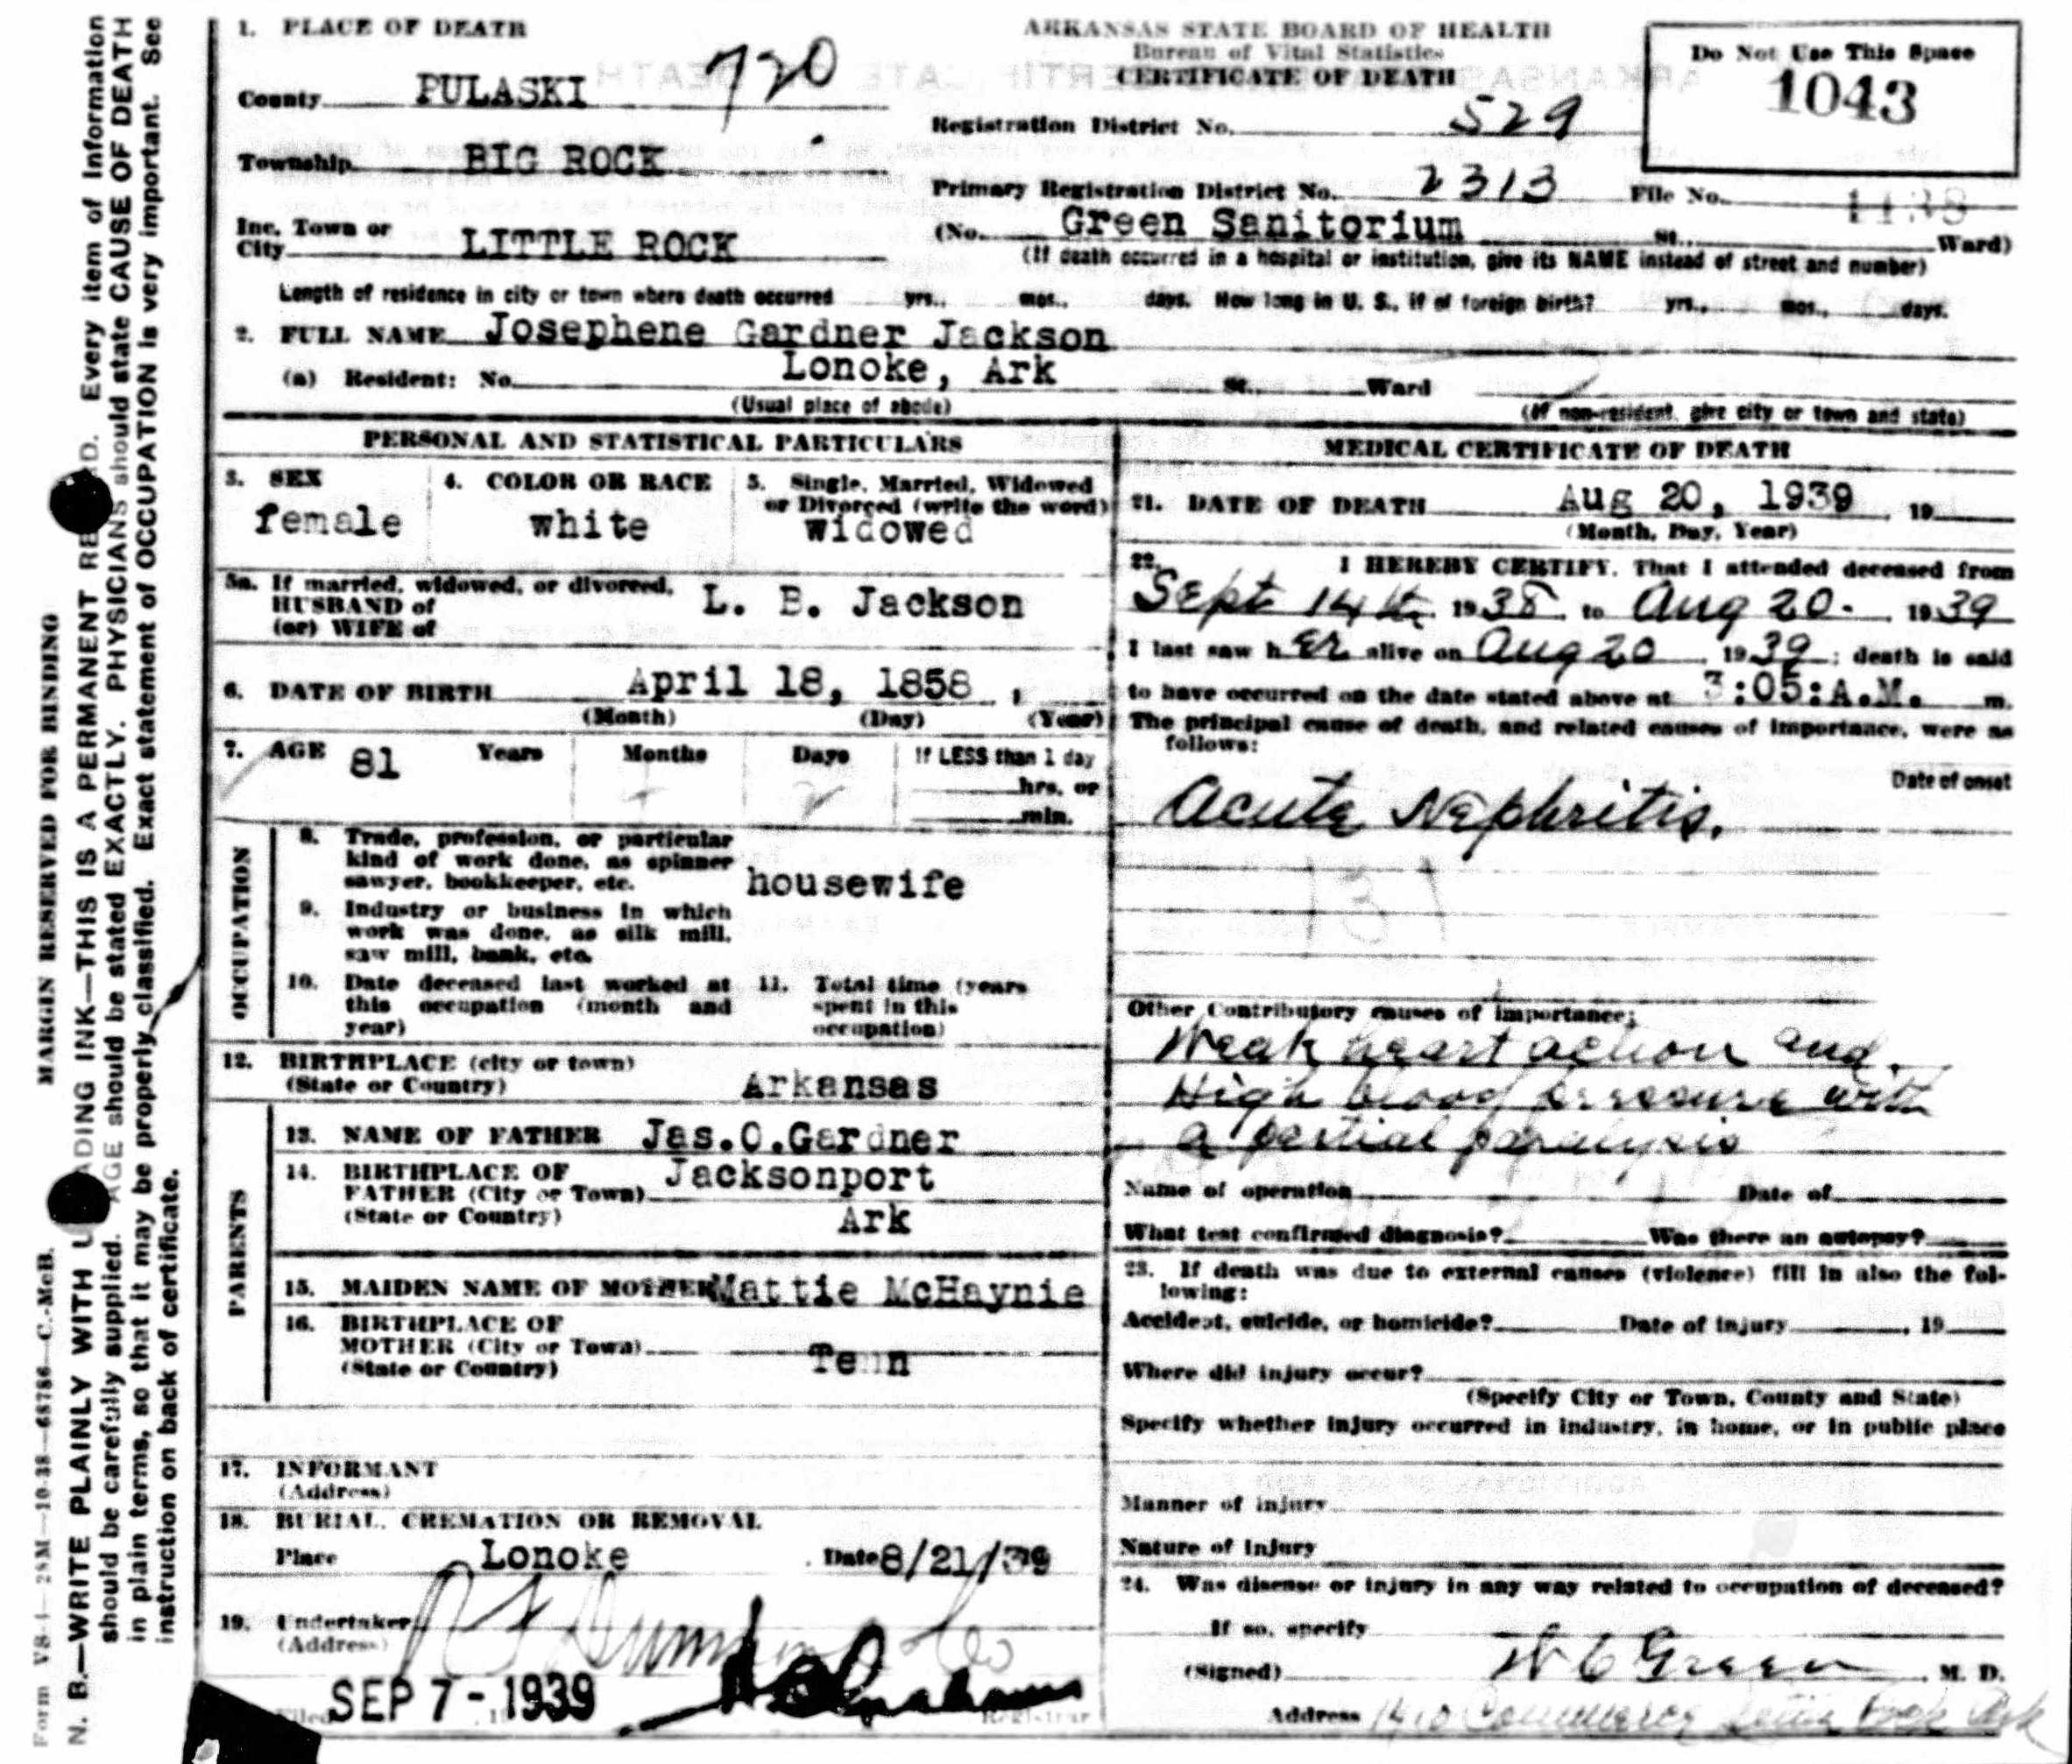 1. PLACE OF DEATH
County PULASKI 720
Township BIG ROCK
Inc. Town or City LITTLE ROCK
ARKANSAS STATE BOARD OF HEALTH
Bureau of Vital Statistics
CERTIFICATE OF DEATH
Do Not Use This Space
1043
Registration District No. 529
Primary Registration District No. 2313 File No. 1138
(No. Green Sanitorium St., Ward)
(If death occurred in a hospital or institution, give its NAME instead of street and number)
Length of residence in city or town where death occurred yrs., mos., days. How long in U. S., if of foreign birth? yrs., mos., days.
2. FULL NAME Josephene Gardner Jackson
(a) Resident: No. Lonoke, Ark St., Ward
(Usual place of abode) (If non-resident, give city or town and state)
PERSONAL AND STATISTICAL PARTICULARS
3. SEX female
4. COLOR OR RACE white
5. Single, Married, Widowed or Divorced (write the word) widowed
5a. If married, widowed, or divorced, HUSBAND of (or) WIFE of L. B. Jackson
6. DATE OF BIRTH April 18, 1858 ,
(Month) (Day) (Year)
7. AGE 81 Years Months Days If LESS than 1 day
hrs. or
min.
OCCUPATION
8. Trade, profession, or particular
kind of work done, as spinner
sawyer, bookkeeper, etc. housewife
9. Industry or business in which
work was done, as silk mill,
saw mill, bank, etc.
10. Date deceased last worked at
this occupation (month and
year)
11. Total time (years
spent in this
occupation)
12. BIRTHPLACE (city or town)
(State or Country) Arkansas
PARENTS
13. NAME OF FATHER Jas.O.Gardner
14. BIRTHPLACE OF
FATHER (City or Town) Jacksonport
(State or Country) Ark
15. MAIDEN NAME OF MOTHER Mattie McHaynie
16. BIRTHPLACE OF
MOTHER (City or Town)
(State or Country) Tenn
17. INFORMANT
(Address)
18. BURIAL, CREMATION OR REMOVAL
Place Lonoke Date 8/21/39
19. Undertaker
(Address)
Filed SEP 7 - 1939 19
Registrar
MEDICAL CERTIFICATE OF DEATH
21. DATE OF DEATH Aug 20, 1939 , 19
(Month, Day, Year)
22. I HEREBY CERTIFY, That I attended deceased from
Sept 14th, 1938 to Aug 20. , 1939
I last saw her alive on Aug 20 , 1939; death is said
to have occurred on the date stated above at 3:05:A.M. m.
The principal cause of death, and related causes of importance, were as
follows:
Date of onset
Acute Nephritis.
131
Other Contributory causes of importance:
Weak heart action and
High blood pressure with
a partial paralysis
Name of operation Date of
What test confirmed diagnosis? Was there an autopsy?
23. If death was due to external causes (violence) fill in also the fol-
lowing:
Accident, suicide, or homicide? Date of injury , 19
Where did injury occur?
(Specify City or Town, County and State)
Specify whether injury occurred in industry, in home, or in public place
Manner of injury
Nature of injury
24. Was disease or injury in any way related to occupation of deceased?
If so, specify
(Signed) W C Green , M. D.
Address 1410 Commerce Little Rock Ark
Form VS-4—25M—10-38—68786—C.-McB.
MARGIN RESERVED FOR BINDING
N. B.—WRITE PLAINLY WITH UNFADING INK—THIS IS A PERMANENT RECORD. Every item of Information
should be carefully supplied. AGE should be stated EXACTLY. PHYSICIANS should state CAUSE OF DEATH
in plain terms, so that it may be properly classified. Exact statement of OCCUPATION is very important. See
instruction on back of certificate.